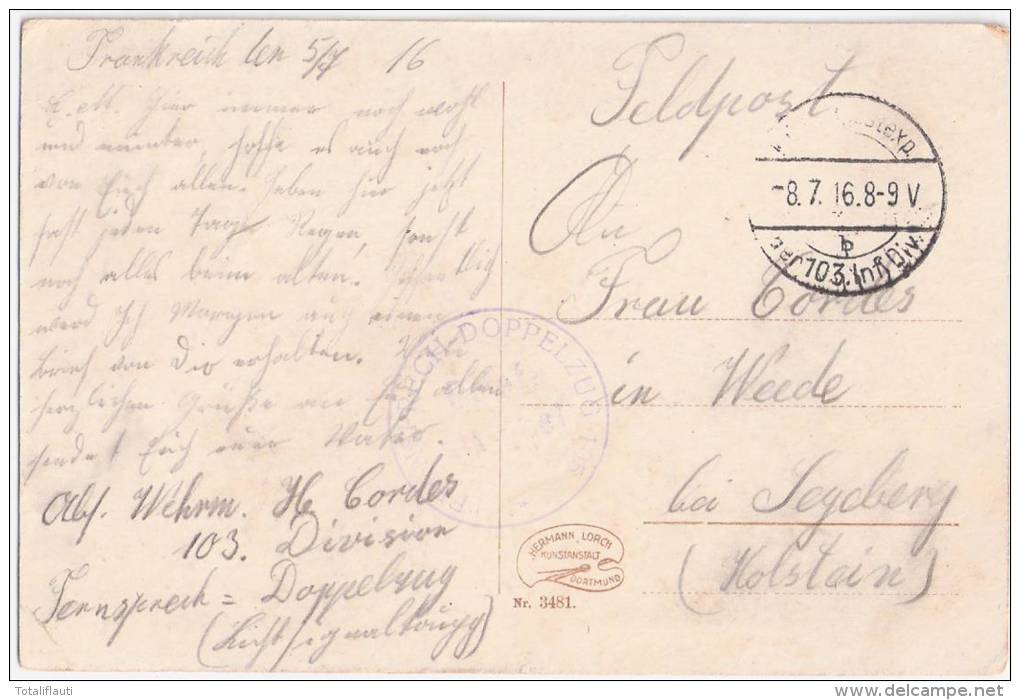 Frankreich den 5/7 16
hier immer noch wohl
und munter, hoffe es auch noch
von Euch allen. Haben hier jetzt
fast jeden Tag Regen, sonst
noch alles beim alten.
werd Ich Morgen auch einen
Brief von Dir erhalten.
herzlichen Grüße an Euch allen
sendet Euch euer Vater.
Abs. Wehrm. H. Cordes
103. Division
Fernsprech = Doppelzug
Feldpost
An
Frau Cordes
in Weede
bei Segeberg
(Holstein)
-8.7.16.8-9 V
b
der 103. Inf. Div.
DOPPELZUG
HERMANN LORCH
KUNSTANSTALT
DORTMUND
Nr. 3481.
Totaliflauti
delcampe.net